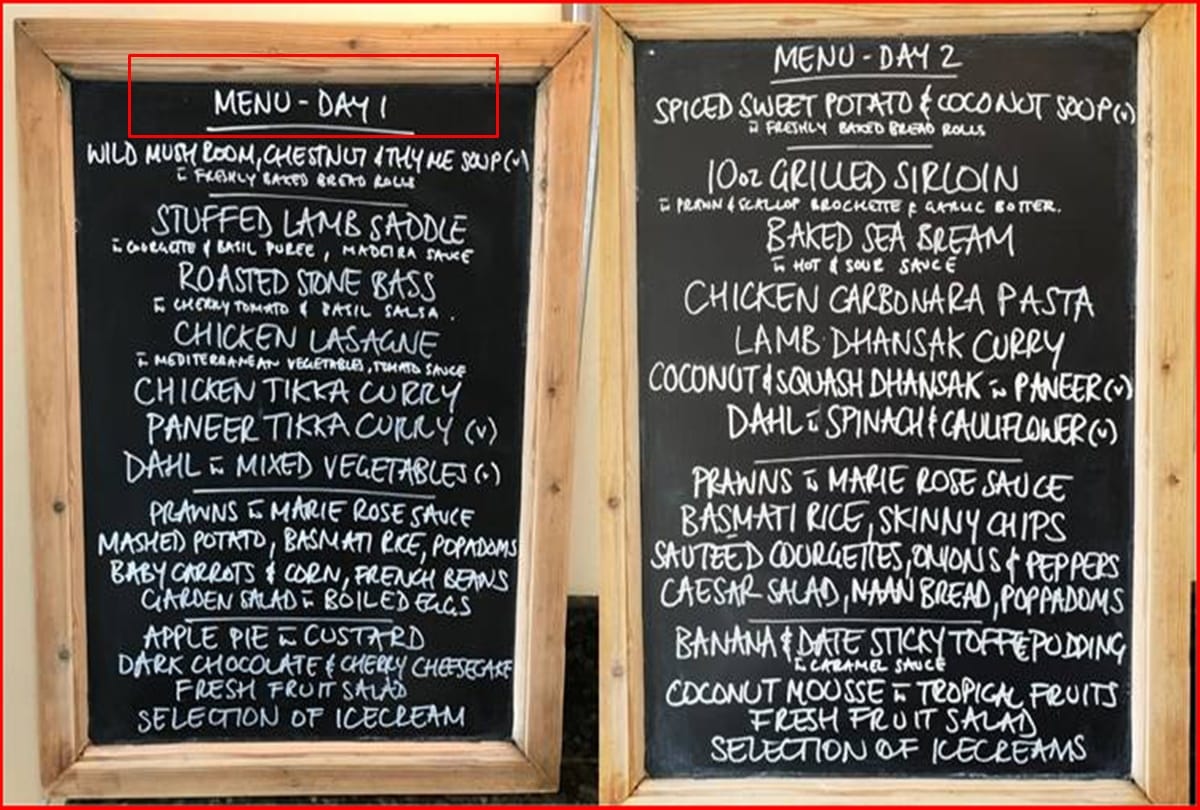 MENU - DAY 1
WILD MUSHROOM, CHESTNUT & THYME SOUP (v)
w̄ FRESHLY BAKED BREAD ROLLS
STUFFED LAMB SADDLE
w̄ COURGETTE & BASIL PUREE, MADEIRA SAUCE
ROASTED STONE BASS
w̄ CHERRY TOMATO & BASIL SALSA.
CHICKEN LASAGNE
w̄ MEDITERRANEAN VEGETABLES, TOMATO SAUCE
CHICKEN TIKKA CURRY
PANEER TIKKA CURRY (v)
DAHL w̄ MIXED VEGETABLES (v)
PRAWNS w̄ MARIE ROSE SAUCE
MASHED POTATO, BASMATI RICE, POPADOMS
BABY CARROTS & CORN, FRENCH BEANS
GARDEN SALAD w̄ BOILED EGGS
APPLE PIE w̄ CUSTARD
DARK CHOCOLATE & CHERRY CHEESECAKE
FRESH FRUIT SALAD
SELECTION OF ICECREAM
MENU - DAY 2
SPICED SWEET POTATO & COCONUT SOUP (v)
w̄ FRESHLY BAKED BREAD ROLLS
10oz GRILLED SIRLOIN
w̄ PRAWN & SCALLOP BROCHETTE & GARLIC BUTTER.
BAKED SEA BREAM
w̄ HOT & SOUR SAUCE
CHICKEN CARBONARA PASTA
LAMB DHANSAK CURRY
COCONUT & SQUASH DHANSAK w̄ PANEER (v)
DAHL w̄ SPINACH & CAULIFLOWER (v)
PRAWNS w̄ MARIE ROSE SAUCE
BASMATI RICE, SKINNY CHIPS
SAUTEED COURGETTES, ONIONS & PEPPERS
CAESAR SALAD, NAAN BREAD, POPPADOMS
BANANA & DATE STICKY TOFFEE PUDDING
w̄ CARAMEL SAUCE
COCONUT MOUSSE w̄ TROPICAL FRUITS
FRESH FRUIT SALAD
SELECTION OF ICECREAMS